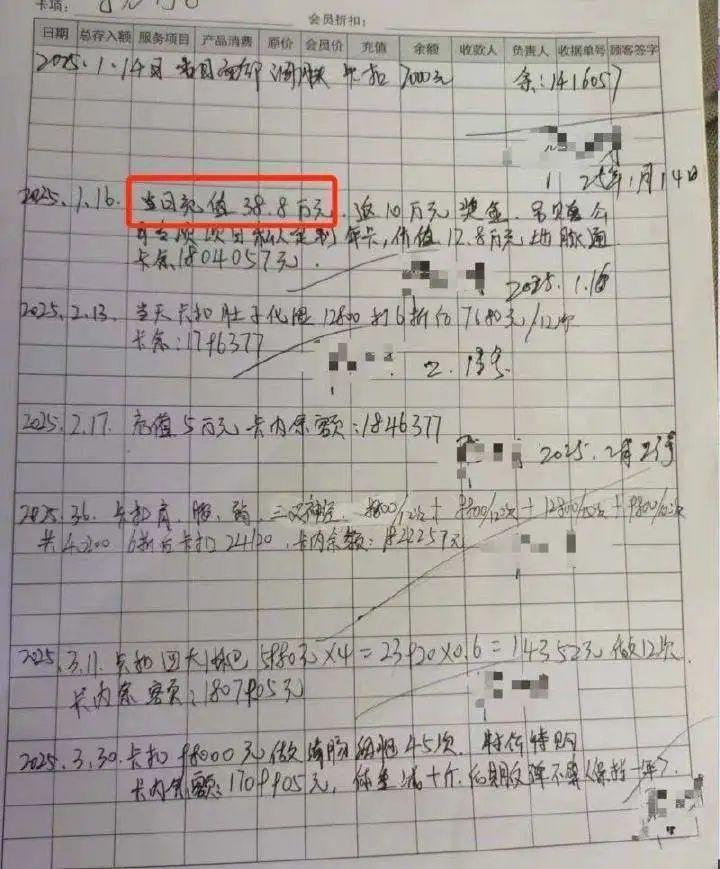 卡项:
会员折扣:
日期 总存入额 服务项目 产品消费 原价 会员价 充值 余额 收款人 负责人 收据单号 顾客签字
2025.1.14日 卡扣 7000元 余:1416057
25年1月14日
2025.1.16. 当日充值38.8万元.返10万元奖金.
年卡,价值12.8万元地脉通
卡余1804057元.
2025.1.16
2025.2.13. 当天卡扣肚子化湿12800打6折后7680元/12次
卡余:1796377
2.13号
2025.2.17. 充值5万元卡内余额:1846377
2025.2月
2025.3.6. 卡扣肩、腿、三叉神经. 9800/12次+12800/12次+9800/12次
共40200 6折后卡扣24120.卡内余额:1822257元
2025.3.11.卡扣四大 5980元×4=23920×0.6=14352元做12次.
卡内余额:1807905元
2025.3.30.卡扣98000元做 45次.特价特购
卡内余额:1709905元,体重减十斤.